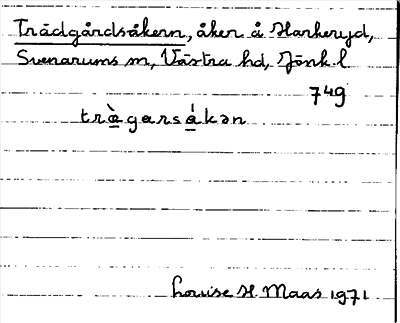 Trädgårdsåkern, åker å Harkeryd,
Svenarums sn, Västra hd, Jönk. l
749
trà̠garsá̠kən
Louise H. Maas 1971